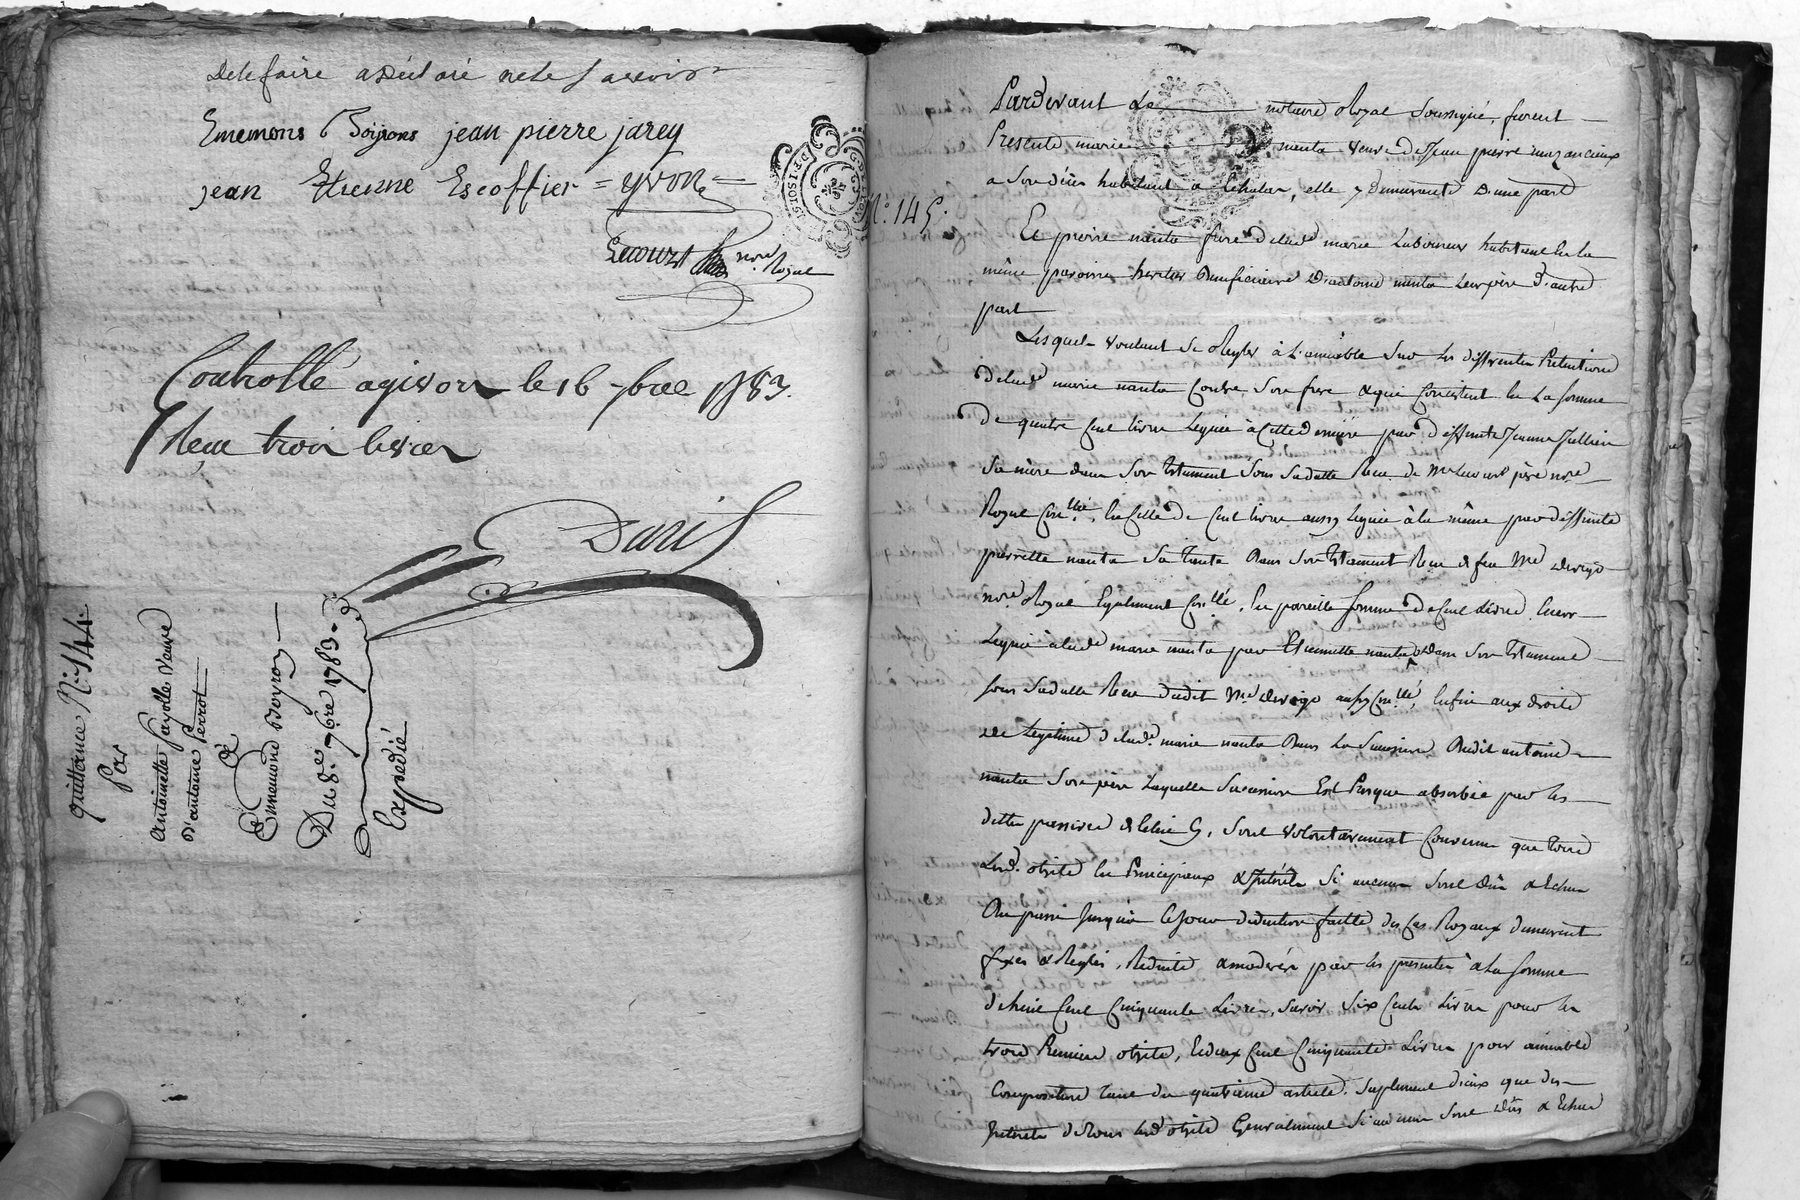 De le faire a déclaré ne le savoir
Enemons Boiyrons jean pierre jarey
jean Etienne Escoffier = yvon =
Lecourt nore. Royal
Controllé a givors le 16 7bre 1783.
Reçu trois livres
Daris
quittance N.° 144.
Par
Antoinette fayolle veuve
D'antoine Perrot
à
Ennemond Boyron
Du 8.e 7bre 1783
Expedié
N.° 145.
Pardevant Le notaire Royal soussigné, furent
Presents, marie nanta veuve de Jean pierre
a son décès habitant à Echalas, elle y demeurante d'une part
Et pierre nanta frere de lade marie Laboureur habitant en la
même paroisse heritier Beneficiaire d'antoine nanta Leur père d'autre
part
Lesquels voulant se Regler à L'amiable sur les differentes Pretentions
de lade marie nanta Contre son frere & qui Consistent en La somme
De quatre Cent livres Leguée à Cette derniere par deffunte Jeanne Jullien
sa mère dans son testament sous sa datte Reçu de Me Lecourt père nore
Royal Conllé, en Celle de Cent livres aussy Leguée à la même par deffunte
pierrette nanta sa tante dans son testament Reçu de feu Me
nore Royal Egalement Conllé, en pareille somme de Cent Livres Encor
Leguée à lade marie nanta par Etiennette nanta dans son testament
sous sa datte Reçu dudit Me aussy Conllé, Enfin aux droits
de Legitime de lade marie nanta dans La succession dudit antoine
nanta son père Laquelle succession Est Presque absorbée par les
dettes passives de Celui Cy, sont volontairement Convenus que tous
Lesd. objets en Principaux & Interêts si aucuns sont dûs & Echus
du passé jusqu'à Ce jour deduction faitte des Cas Royaux demeurent
fixés & Reglés, Reduits & moderés par les presentes à La somme
de huit Cent Cinquante Livres, savoir six Cents Livres pour les
trois Premiers objets, & deux Cent Cinquante Livres pour amiable
Composition tant du quatrieme article, suplement d'icelui que des
Interêts de tous lesd objets Generalement si aucuns sont dûs & Echus